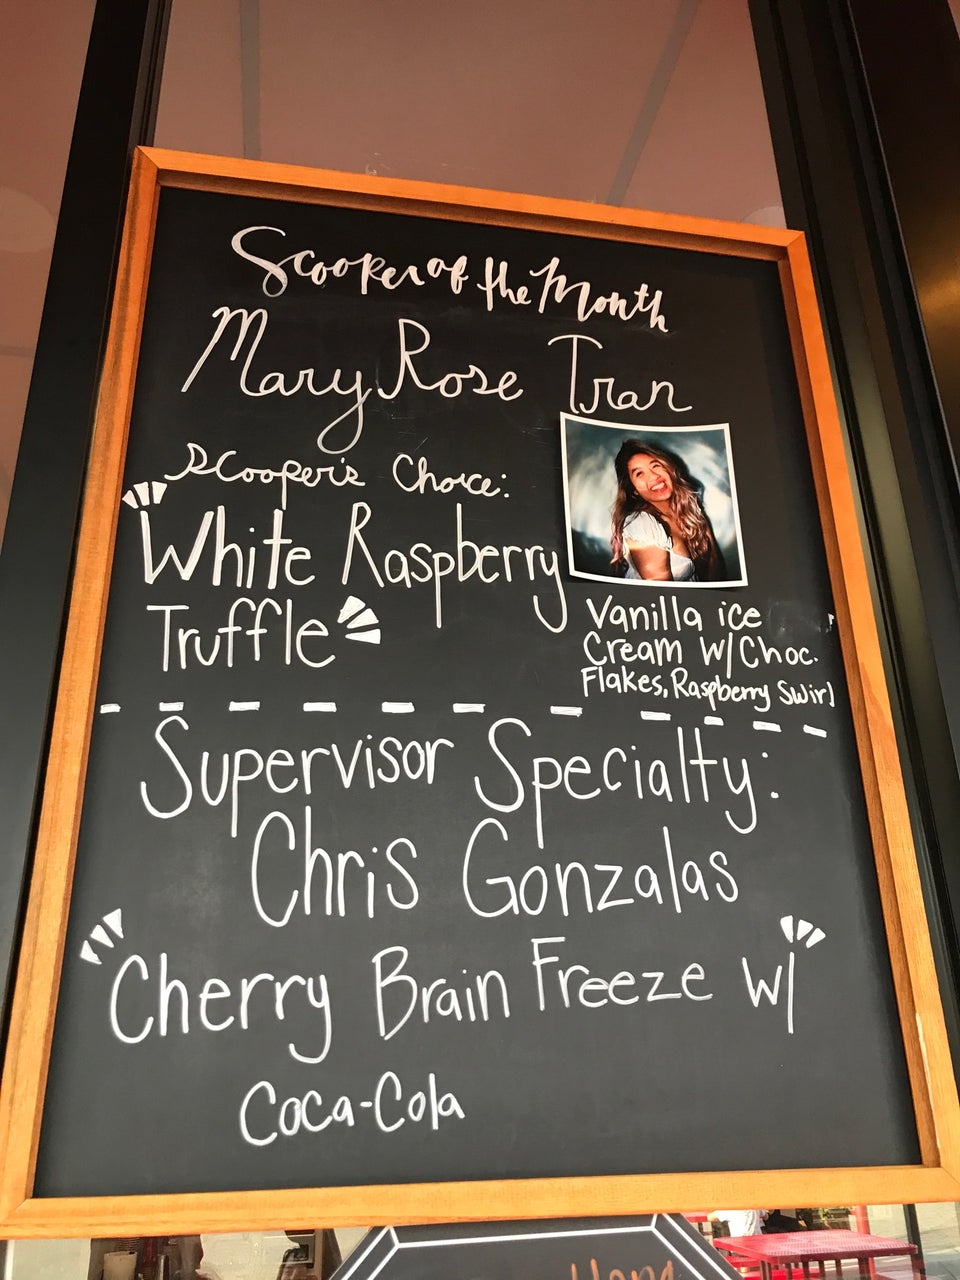 Scooper of the Month
Mary Rose Tran
Scooper's Choice:
White Raspberry
Truffle
Vanilla ice
Cream w/Choc.
Flakes, Raspberry Swirl
Supervisor Specialty:
Chris Gonzalas
Cherry Brain Freeze w/
Coca-Cola